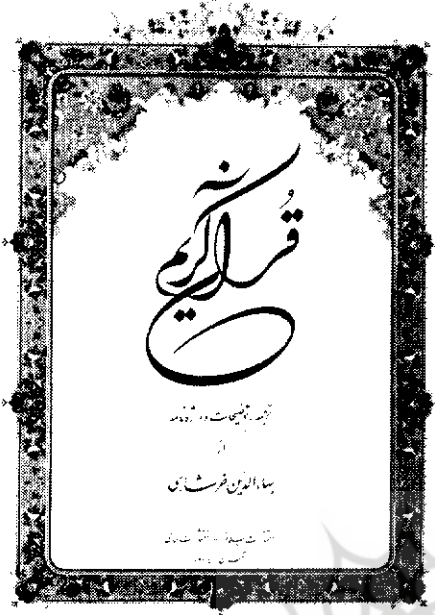 قرآن کریم
ترجمه، توضیحات و واژه‌نامه
از
بهاءالدین خرمشاهی